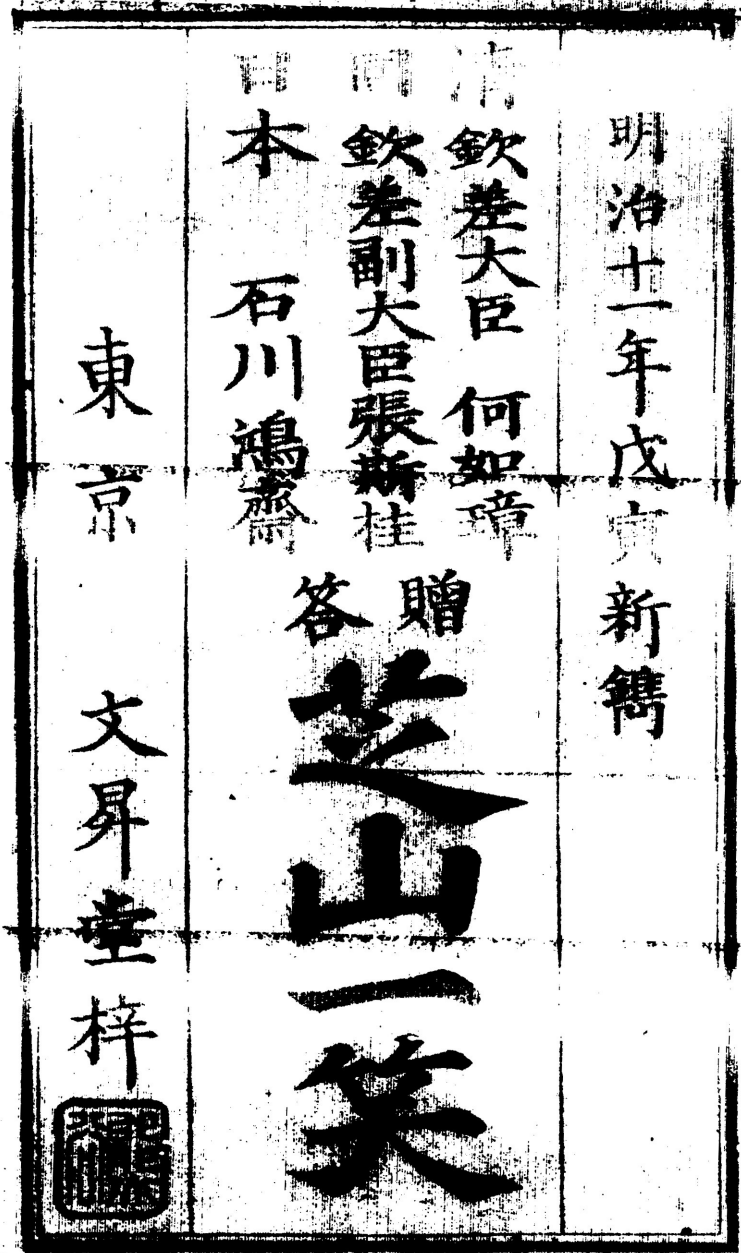 明治十一年戊寅新鐫
清 欽差大臣 何如璋
國 欽差副大臣張斯桂
日本 石川鴻齋
贈答
芝山一笑
東京 文昇堂梓